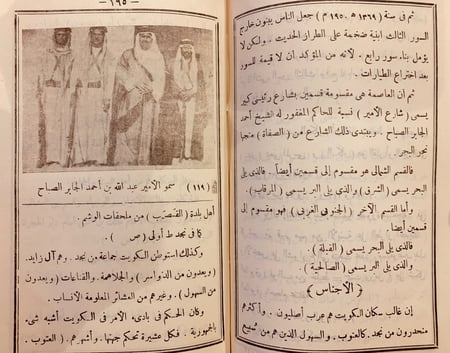 ثم فى سنة ( ١٣٦٩ ه ١٩٥٠ م ) جعل الناس يبنون خارج
السور الثالث ابنية ضخمة على الطراز الحديث . ولكن لا
يؤمل بناء سور رابع . لأنه من المؤكد ان لا قيمة للسور
بعد اختراع الطيارات .
ثم ان العاصمة هى مقسومة قسمين بشارع رئيسى كبير
يسمى ( شارع الأمير ) نسبة للحاكم المغفور له الشيخ احمد
الجابر الصباح . ويبتدى ذلك الشارع من ( الصفاة ) متجها
نحو البحر .
فالقسم الشمالى هو مقسوم إلى قسمين أيضاً . فالذى يلى
البحر يسمى ( الشرق ) والذى يلى البر يسمى ( المرقاب ) .
وأما القسم الآخر ( الجنوبى الغربى ) فهو مقسوم إلى
قسمين أيضاً .
فالذى يلى البحر يسمى ( القبلة ) .
والذى يلى البر يسمى ( الصالحية ) .
﴿ الأجناس ﴾
إن غالب سكان الكويت هم عرب أصليون . وأكثرهم
منحدرون من نجد . كالعتوب . والسهول الذين هم من سبيع
— ١٩٥ —
( ١١٩ ) سمو الأمير عبد الله بن أحمد الجابر الصباح
أهل بلدة ( القصب ) من ملحقات الوشم .
كما فى نجد ط أولى ( ص ) .
وكذلك استوطن الكويت جماعة من نجد . وهم آل زايد .
( ويعدون من الدواسر ) والجلاهمة . والقناعات ( ويعدون
من السهول ) . وغيرهم من العشائر المعلومة الأنساب .
وكان الحكم فى بادىء الأمر فى الكويت أشبه شىء
بالجمهورية . فكل عشيرة تحكم جهتها . وأشهرهم . ( العتوب .